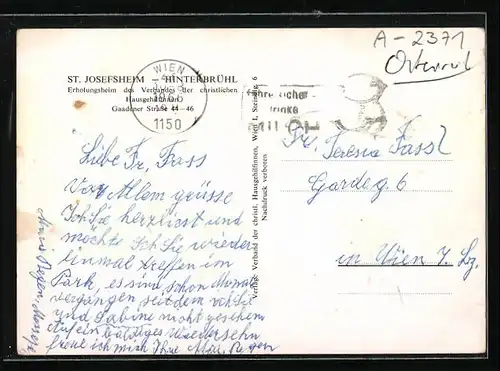 A-2371
Österreich
ST. JOSEFSHEIM — HINTERBRÜHL
Erholungsheim des Verbandes der christlichen
Hausgehilfinnen
Gaadener Straße 44 — 46
WIEN
1150
trinke
MILCH
Verlag: Verband der christl. Hausgehilfinnen, Wien I, Steindlg. 6
Nachdruck verboten
Liebe Fr. Fassl
Vor Allem grüsse
Ich Sie herzliest und
möchte Ich Sie wieder
einmal treffen im
Park, es sind schon Monate
vergangen seitdem ich Sie
und Sabine nicht gesehen
Auf ein baldiges Wiedersehn
freue ich mich Ihre Mitzi Regen
Fr. Teresia Fassl
Gardeg 6
in Wien 7. Bz.